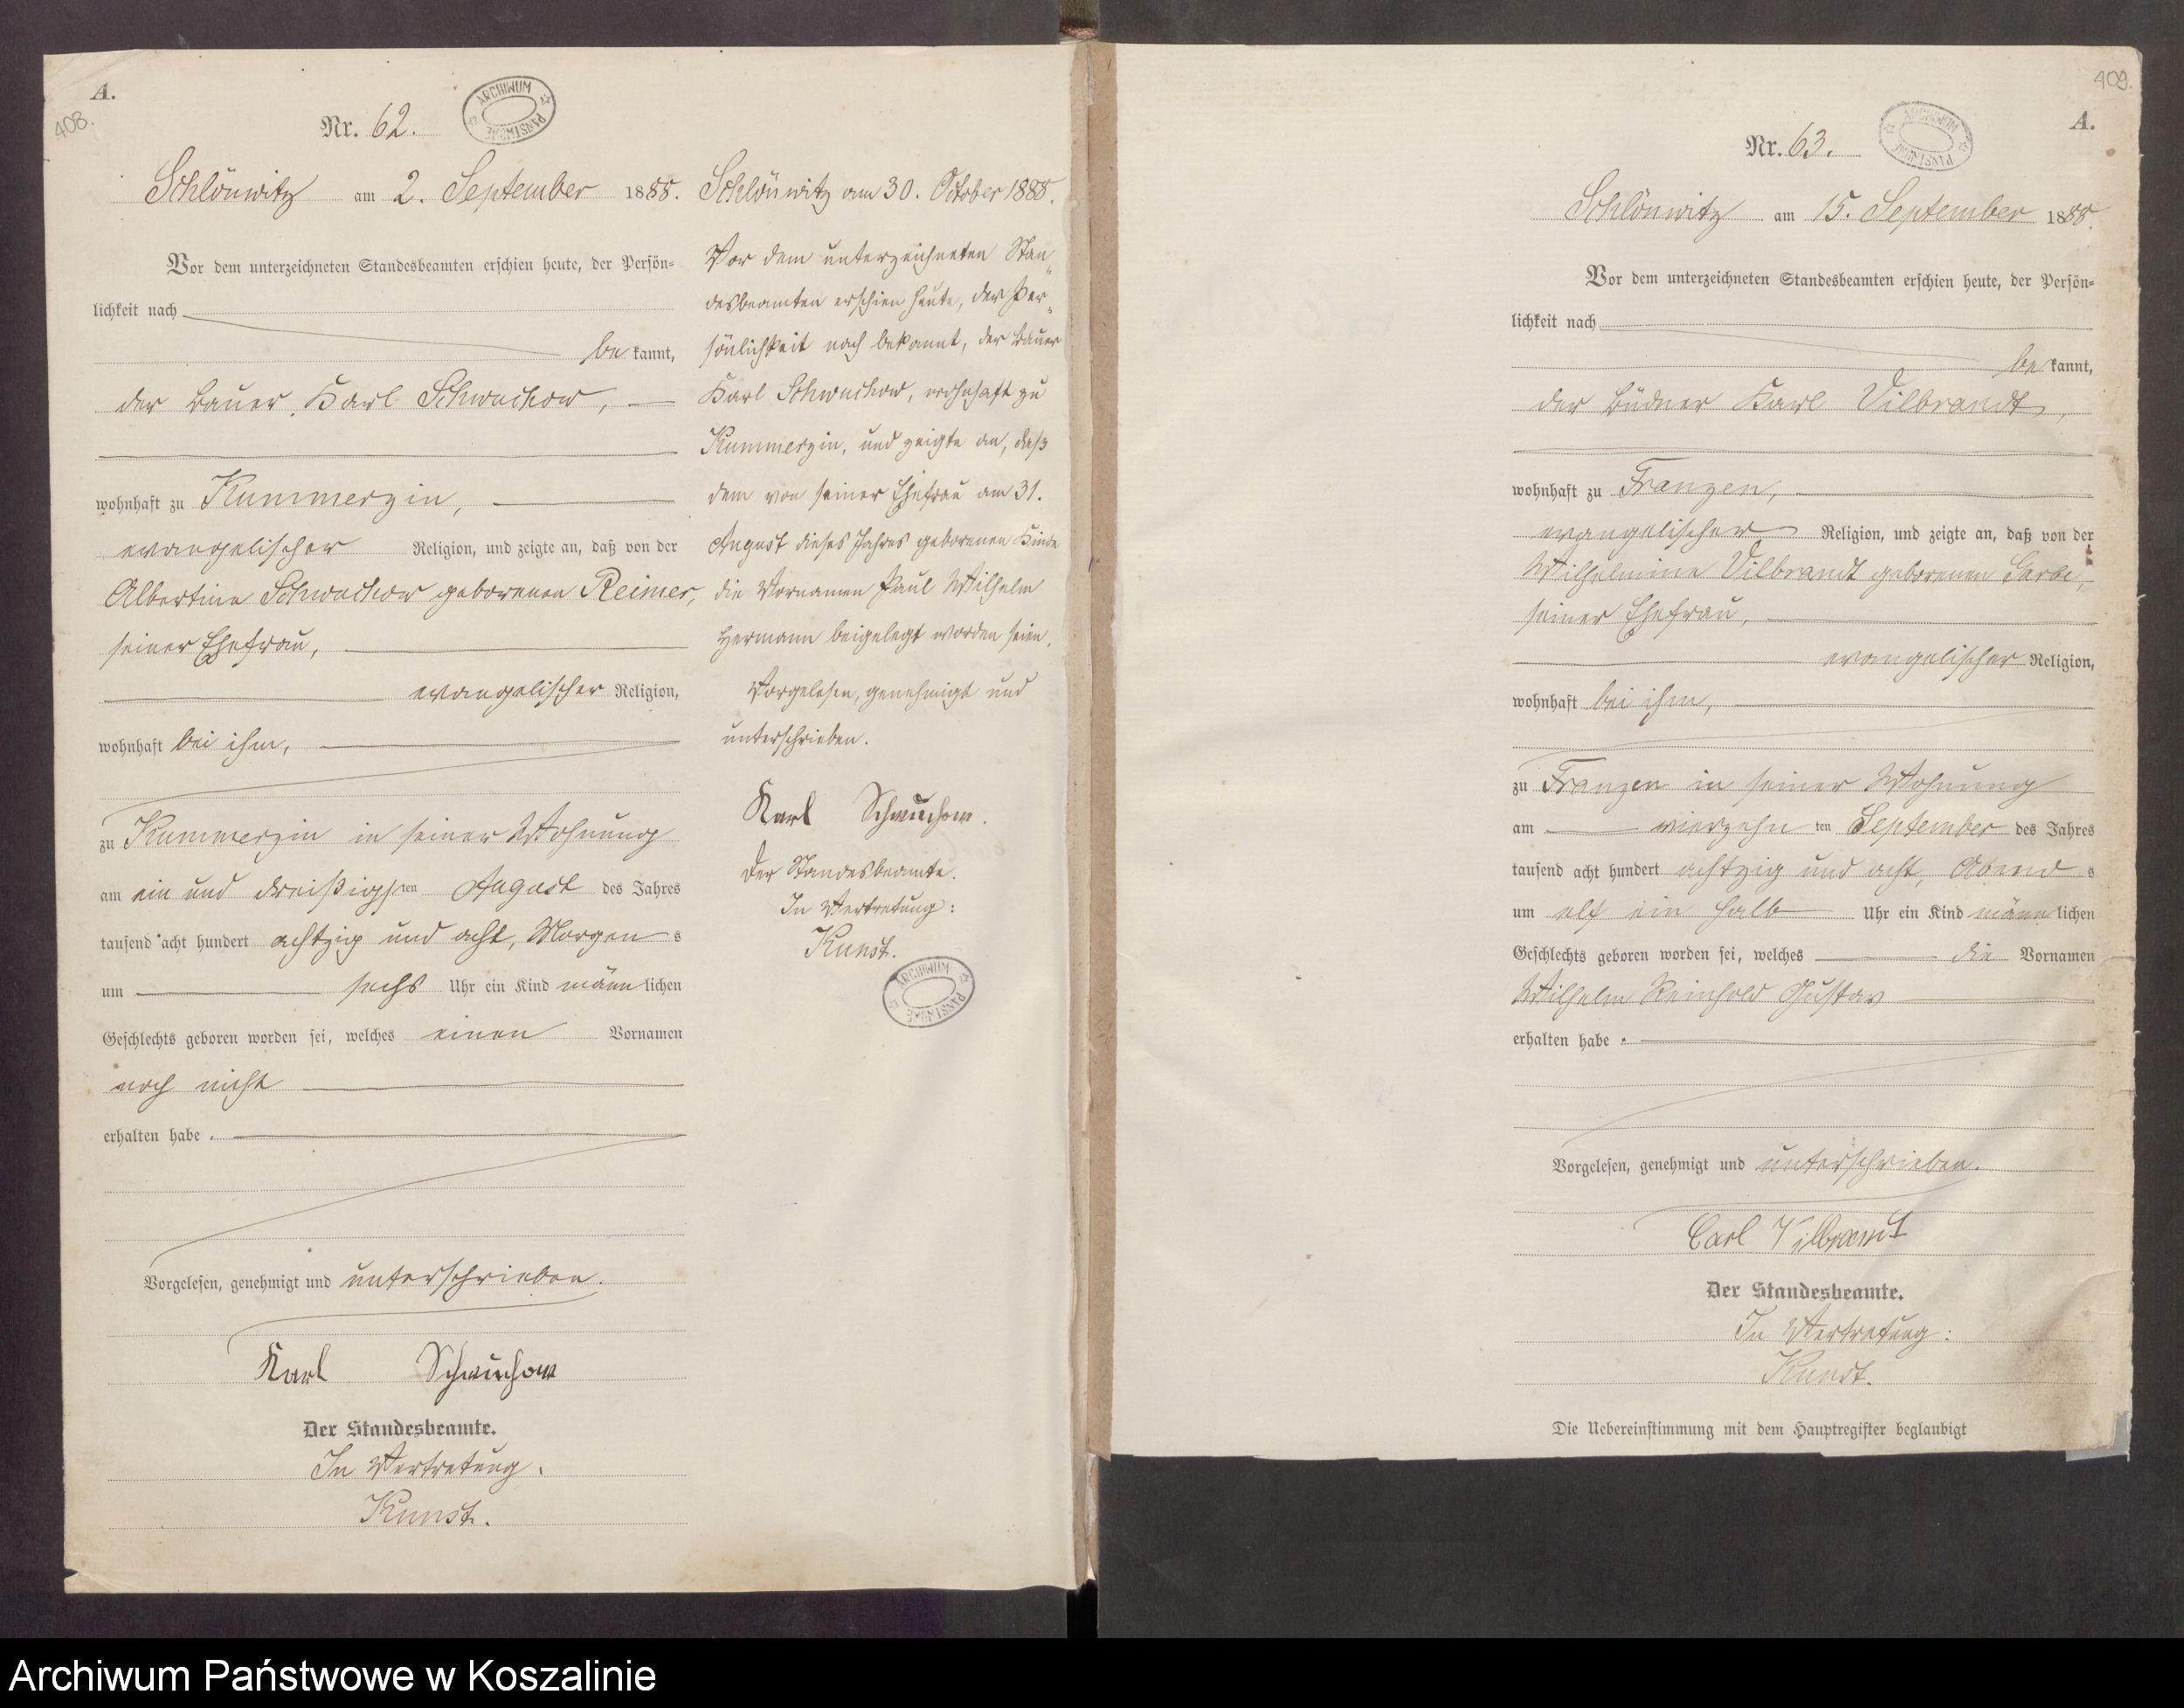 A.
408.
Nr. 62.
ARCHIWUM PAŃSTWOWE
Schlönwitz am 2. September 1888.
Vor dem unterzeichneten Standesbeamten erschien heute, der Persön=
lichkeit nach
be kannt,
der Bauer Karl Schwuchow,
wohnhaft zu Kummerzin,
evangelischer Religion, und zeigte an, daß von der
Albertine Schwuchow geborenen Reimer,
seiner Ehefrau,
evangelischer Religion,
wohnhaft bei ihm,
zu Kummerzin in seiner Wohnung
am ein und dreißigsten August des Jahres
tausend acht hundert achtzig und acht, Morgens
um sechs Uhr ein Kind männlichen
Geschlechts geboren worden sei, welches einen Vornamen
noch nicht
erhalten habe.
Vorgelesen, genehmigt und unterschrieben.
Karl Schwuchow
Der Standesbeamte.
In Vertretung.
Kunst.
Schlönwitz am 30. October 1888.
Vor dem unterzeichneten Stan=
desbeamten erschien heute, der Per=
sönlichkeit nach bekannt, der Bauer
Karl Schwuchow, wohnhaft zu
Kummerzin, und zeigte an, daß
dem von seiner Ehefrau am 31.
August dieses Jahres geborenen Kinde
die Vornamen Paul Wilhelm
Hermann beigelegt worden seien.
Vorgelesen, genehmigt und
unterschrieben.
Karl Schwuchow.
Der Standesbeamte.
In Vertretung:
Kunst.
ARCHIWUM PAŃSTWOWE
409.
A.
Nr. 63.
ARCHIWUM PAŃSTWOWE
Schlönwitz am 15. September 1888.
Vor dem unterzeichneten Standesbeamten erschien heute, der Persön=
lichkeit nach
be kannt,
der Büdner Karl Vilbrandt,
wohnhaft zu Franzen,
evangelischer Religion, und zeigte an, daß von der
Wilhelmine Vilbrandt geborenen Garbe,
seiner Ehefrau,
evangelischer Religion,
wohnhaft bei ihm,
zu Franzen in seiner Wohnung
am vierzehnten September des Jahres
tausend acht hundert achtzig und acht, Abends
um elf ein halb Uhr ein Kind männlichen
Geschlechts geboren worden sei, welches die Vornamen
Wilhelm Reinhold Gustav
erhalten habe.
Vorgelesen, genehmigt und unterschrieben.
Carl Vilbrandt
Der Standesbeamte.
In Vertretung:
Kunst.
Die Uebereinstimmung mit dem Hauptregister beglaubigt
Archiwum Państwowe w Koszalinie